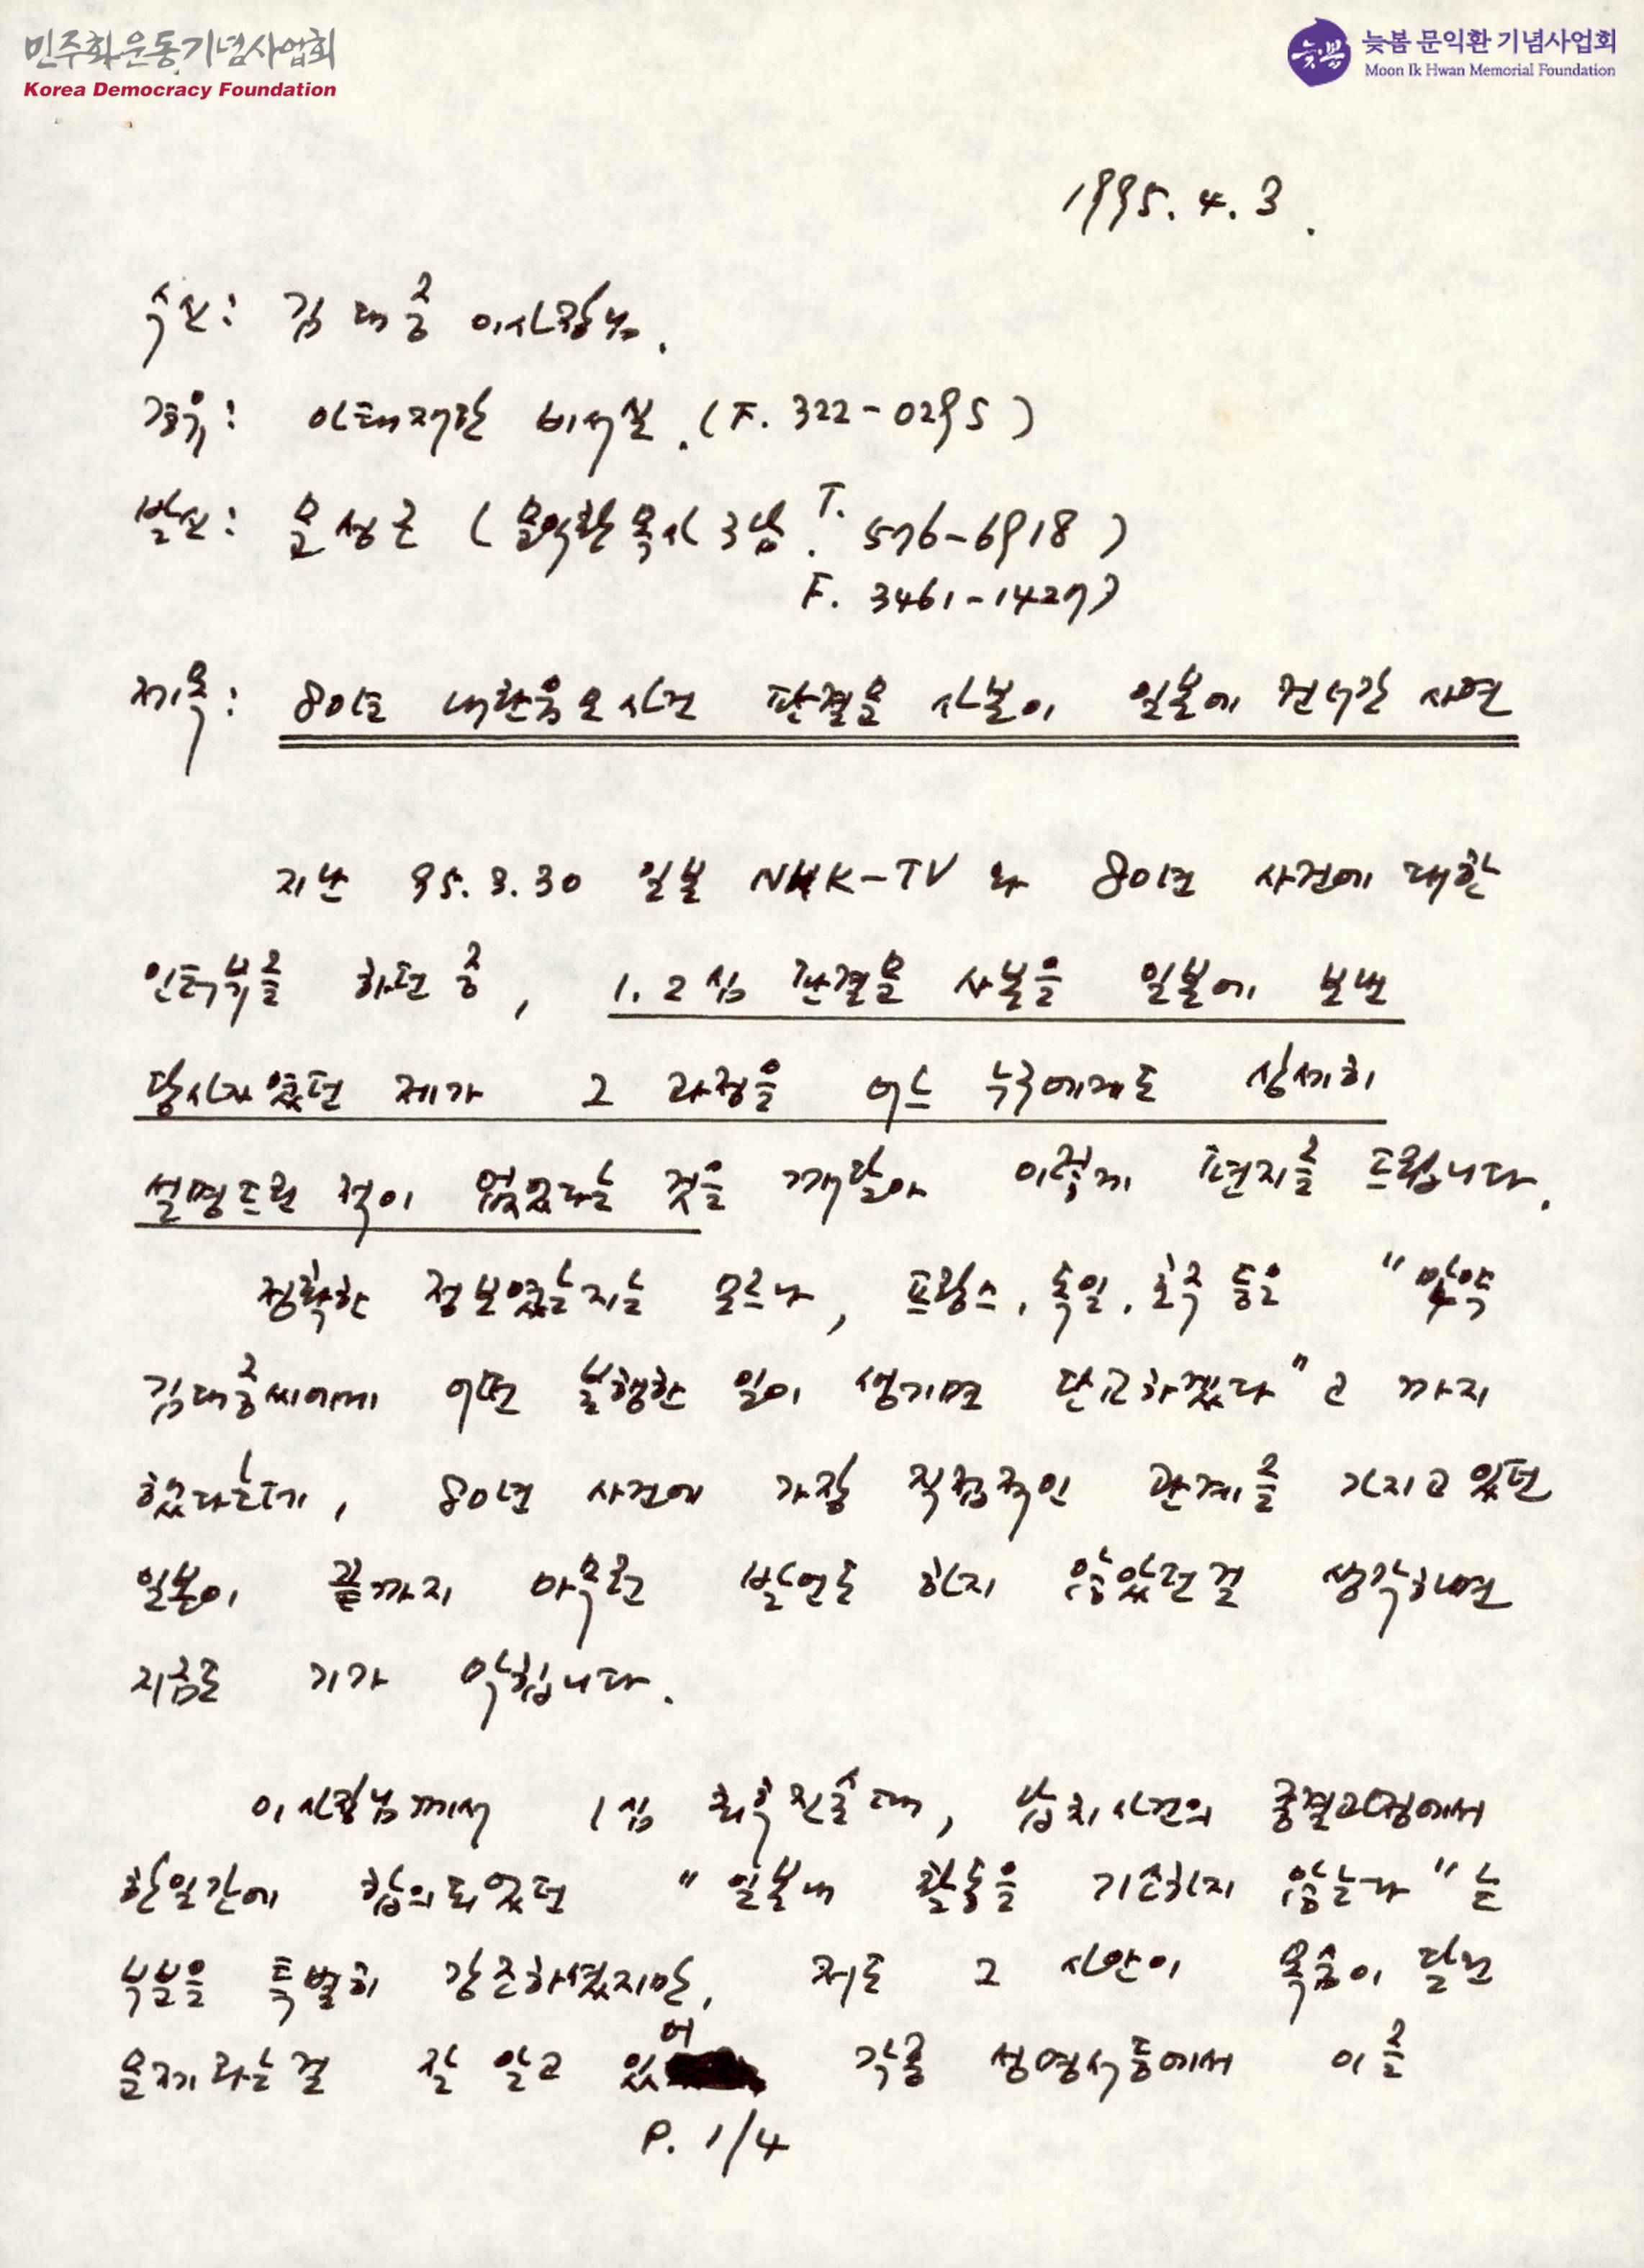 민주화운동기념사업회
Korea Democracy Foundation
늦봄
늦봄 문익환 기념사업회
Moon Ik Hwan Memorial Foundation
1995. 4. 3.
수신: 김대중 이사장님.
경유: 아태재단 비서실. (F. 322-0295)
발신: 문성근 (문익환 목사 3남. T. 576-6918)
F. 3461-1427)
제목: 80년 내란음모사건 판결문 사본이 일본에 건너간 사연
지난 95. 3. 30 일본 NHK-TV 와 80년 사건에 대한
인터뷰를 하던 중, 1. 2심 판결문 사본을 일본에 보낸
당사자였던 제가 그 과정을 어느 누구에게도 상세히
설명드린 적이 없었다는 것을 깨달아 이렇게 편지를 드립니다.
정확한 정보였는지는 모르나, 프랑스, 독일, 호주 등은 "만약
김대중씨에게 어떤 불행한 일이 생기면 단교하겠다"고 까지
했다는데, 80년 사건에 가장 직접적인 관계를 가지고 있던
일본이 끝까지 아무런 발언도 하지 않았던걸 생각하면
지금도 기가 막힙니다.
이사장님께서 1심 최후진술때, 납치사건의 종결과정에서
한일간에 합의되었던 "일본내 활동을 기소하지 않는다"는
부분을 특별히 강조하셨지만, 저도 그 사안이 목숨이 달린
문제라는걸 잘 알고 있어 각종 성명서등에서 이를
P. 1/4